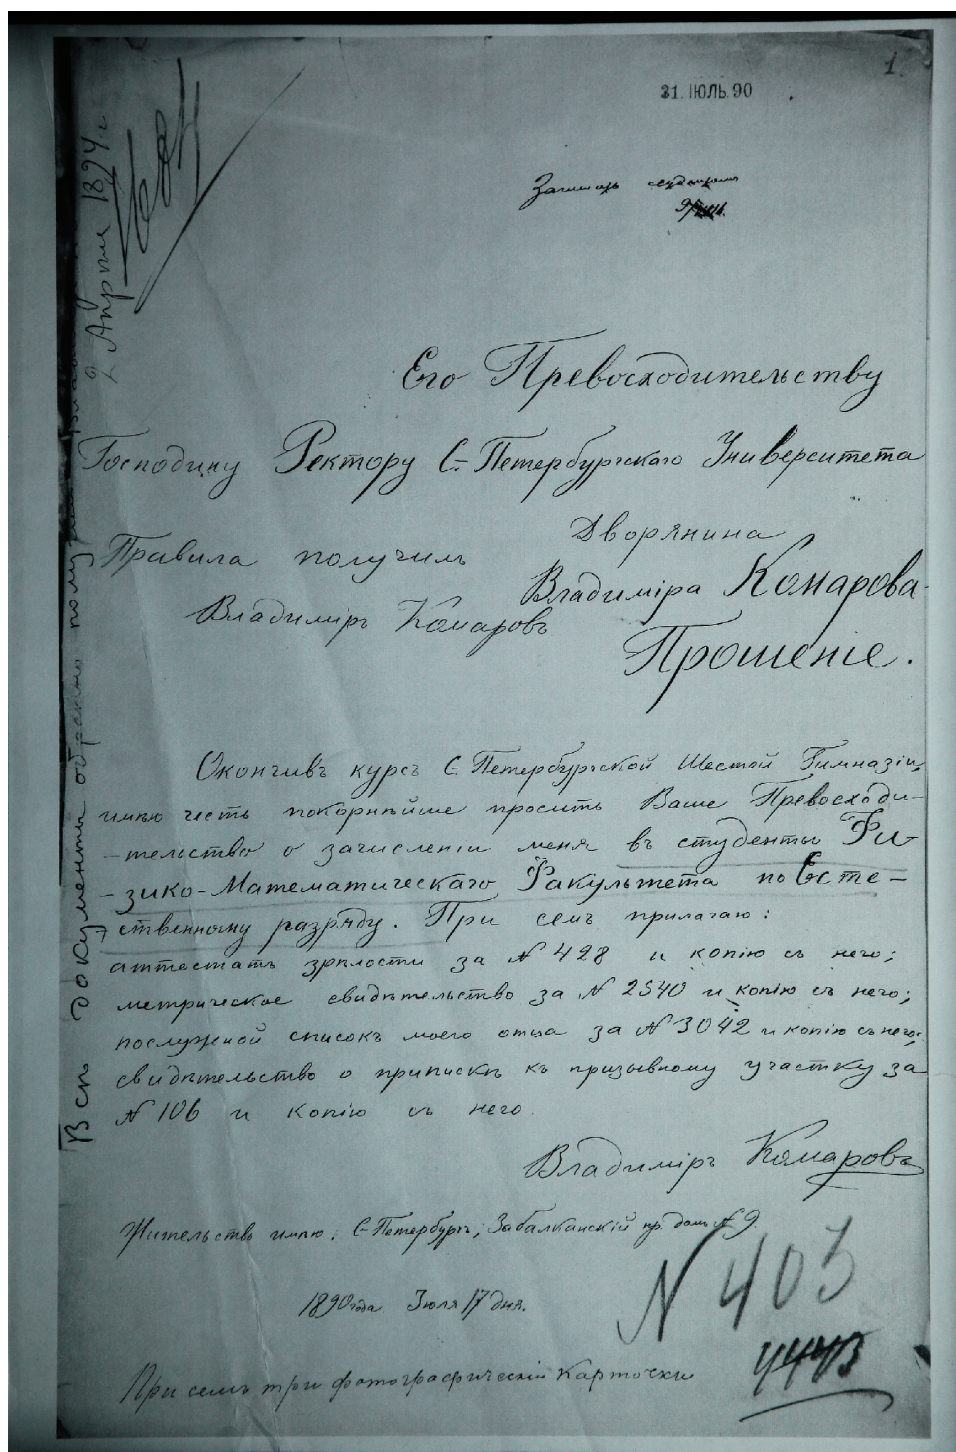 1.
31. ІЮЛЬ. 90
Его Превосходительству
Господину Ректору С.-Петербургскаго Университета
Дворянина
Владиміра Комарова.
Прошеніе.
Правила получилъ
Владиміръ Комаровъ
Окончивъ курсъ С. Петербургской Шестой Гимназіи,
имѣю честь покорнѣйше просить Ваше Превосходи-
-тельство о зачисленіи меня въ студенты Фи-
-зико-Математическаго Факультета по Есте-
ственному разряду. При семъ прилагаю:
аттестатъ зрѣлости за № 428 и копію съ него;
метрическое свидѣтельство за № 2540 и копію съ него;
послужной списокъ моего отца за № 3042 и копію съ него;
свидѣтельство о припискѣ къ призывному участку за
№ 106 и копію съ него.
Владиміръ Комаровъ
Жительство имѣю: С-Петербургъ, Забалканскій пр. домъ № 9.
1890 года Іюля 17 дня.
При семъ три фотографическій карточки
N 403
Всѣ документы обратно
2 Апрѣля 1894 г.